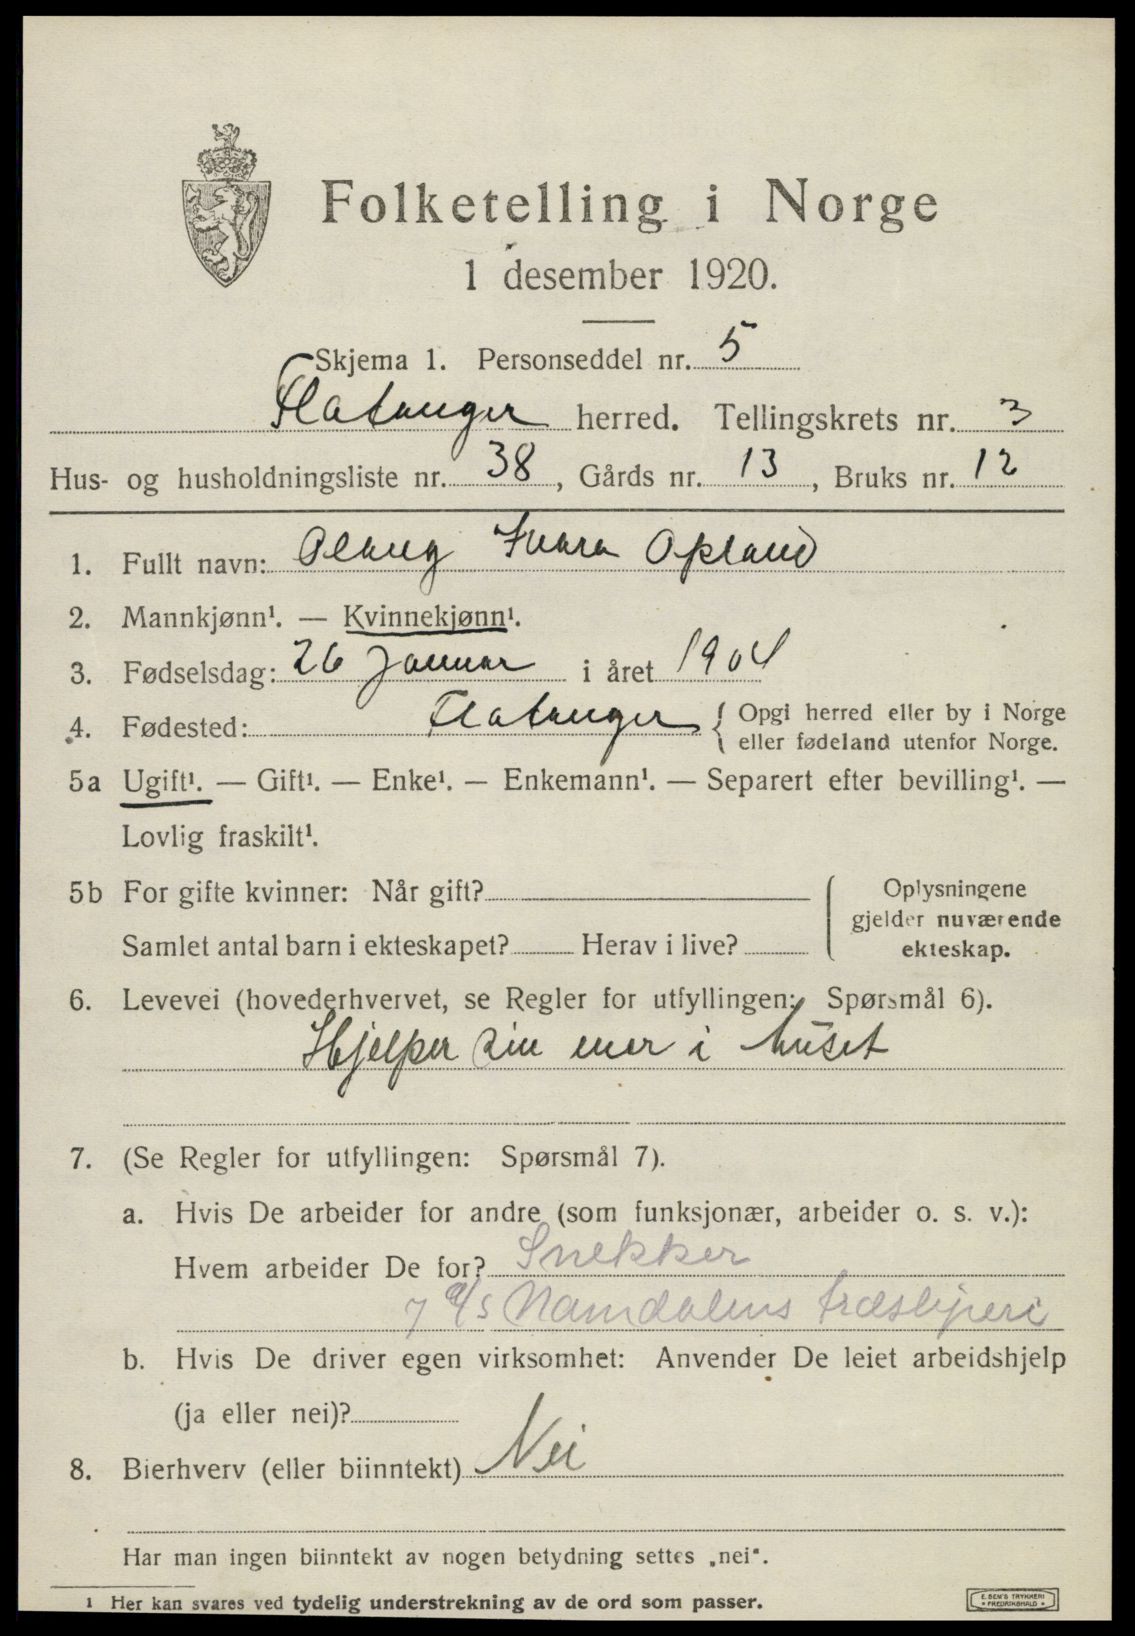 Folketelling i Norge
1 desember 1920.
Skjema 1. Personseddel nr. 5
Flatanger herred. Tellingskrets nr. 3
Hus- og husholdningsliste nr. 38, Gårds nr. 13, Bruks nr. 12
1. Fullt navn: Olaug Ivara Opland
2. Mannkjønn¹. — Kvinnekjønn¹.
3. Fødselsdag: 26 januar i året 1904
4. Fødested: Flatanger { Opgi herred eller by i Norge
eller fødeland utenfor Norge.
5a Ugift¹. — Gift¹. — Enke¹. — Enkemann¹. — Separert efter bevilling¹. —
Lovlig fraskilt¹.
5b For gifte kvinner: Når gift?
Samlet antal barn i ekteskapet? Herav i live?
Oplysningene
gjelder nuværende
ekteskap.
6. Levevei (hovederhvervet, se Regler for utfyllingen: Spørsmål 6).
Hjelper sin mor i huset
7. (Se Regler for utfyllingen: Spørsmål 7).
a. Hvis De arbeider for andre (som funksjonær, arbeider o. s. v.):
Hvem arbeider De for? Snekker
A/S Namdalens træsliperi
b. Hvis De driver egen virksomhet: Anvender De leiet arbeidshjelp
(ja eller nei)?
8. Bierhverv (eller biinntekt) Nei
Har man ingen biinntekt av nogen betydning settes „nei“.
1 Her kan svares ved tydelig understrekning av de ord som passer.
E. SEM'S TRYKKERI
FREDRIKSHALD